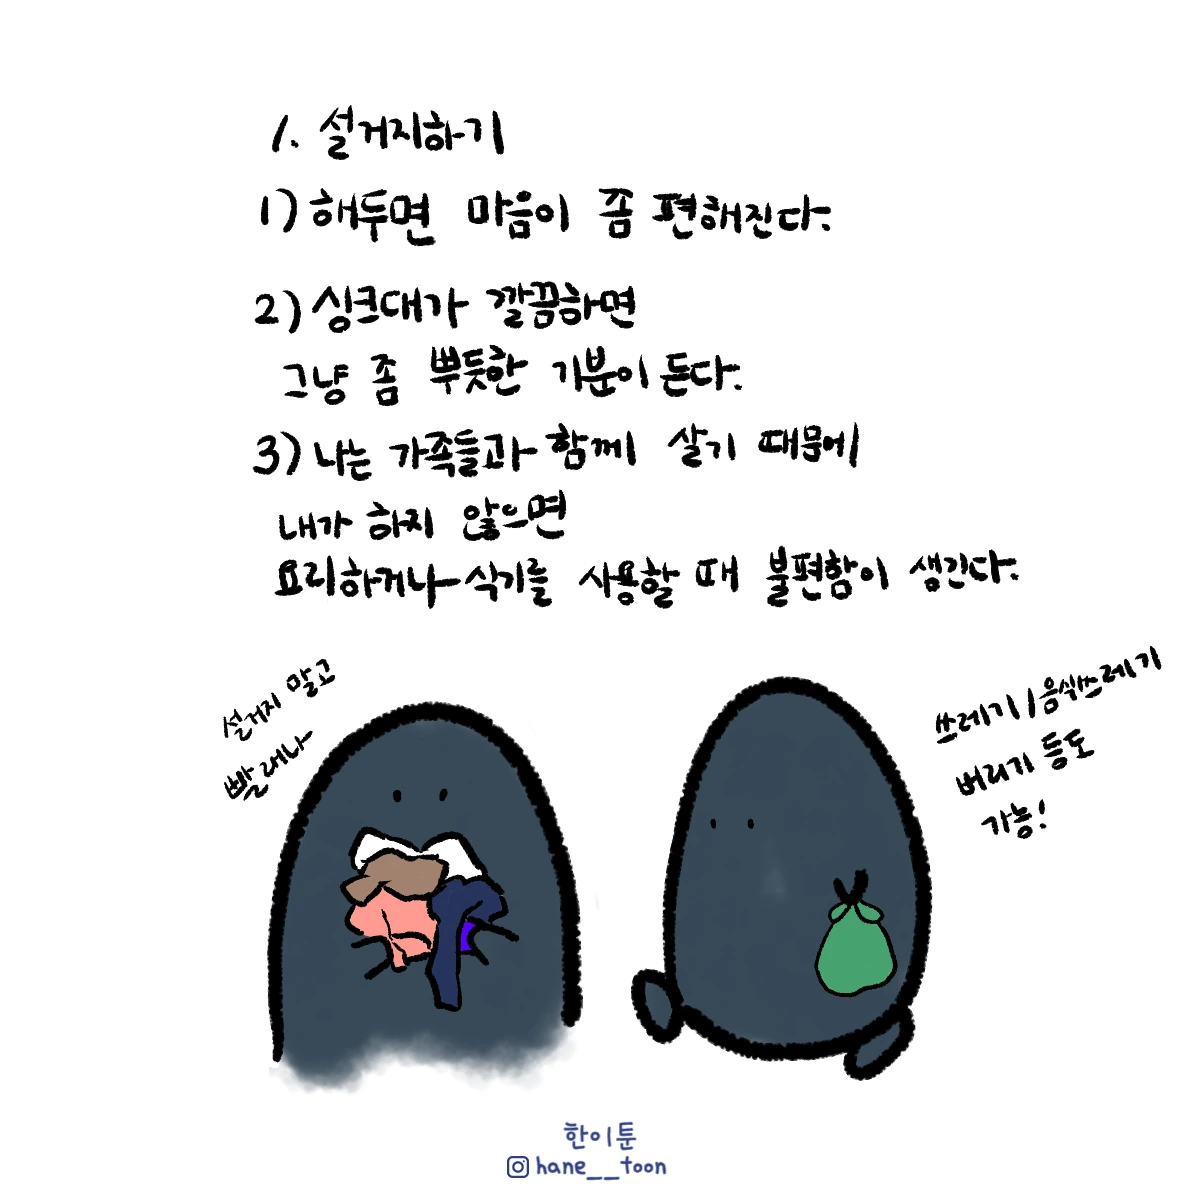 1. 설거지하기
1) 해두면 마음이 좀 편해진다.
2) 싱크대가 깔끔하면
그냥 좀 뿌듯한 기분이 든다.
3) 나는 가족들과 함께 살기 때문에
내가 하지 않으면
요리하거나 식기를 사용할 때 불편함이 생긴다.
설거지 말고
빨래나
쓰레기/음식쓰레기
버리기 등도
가능!
한이툰
hane__toon